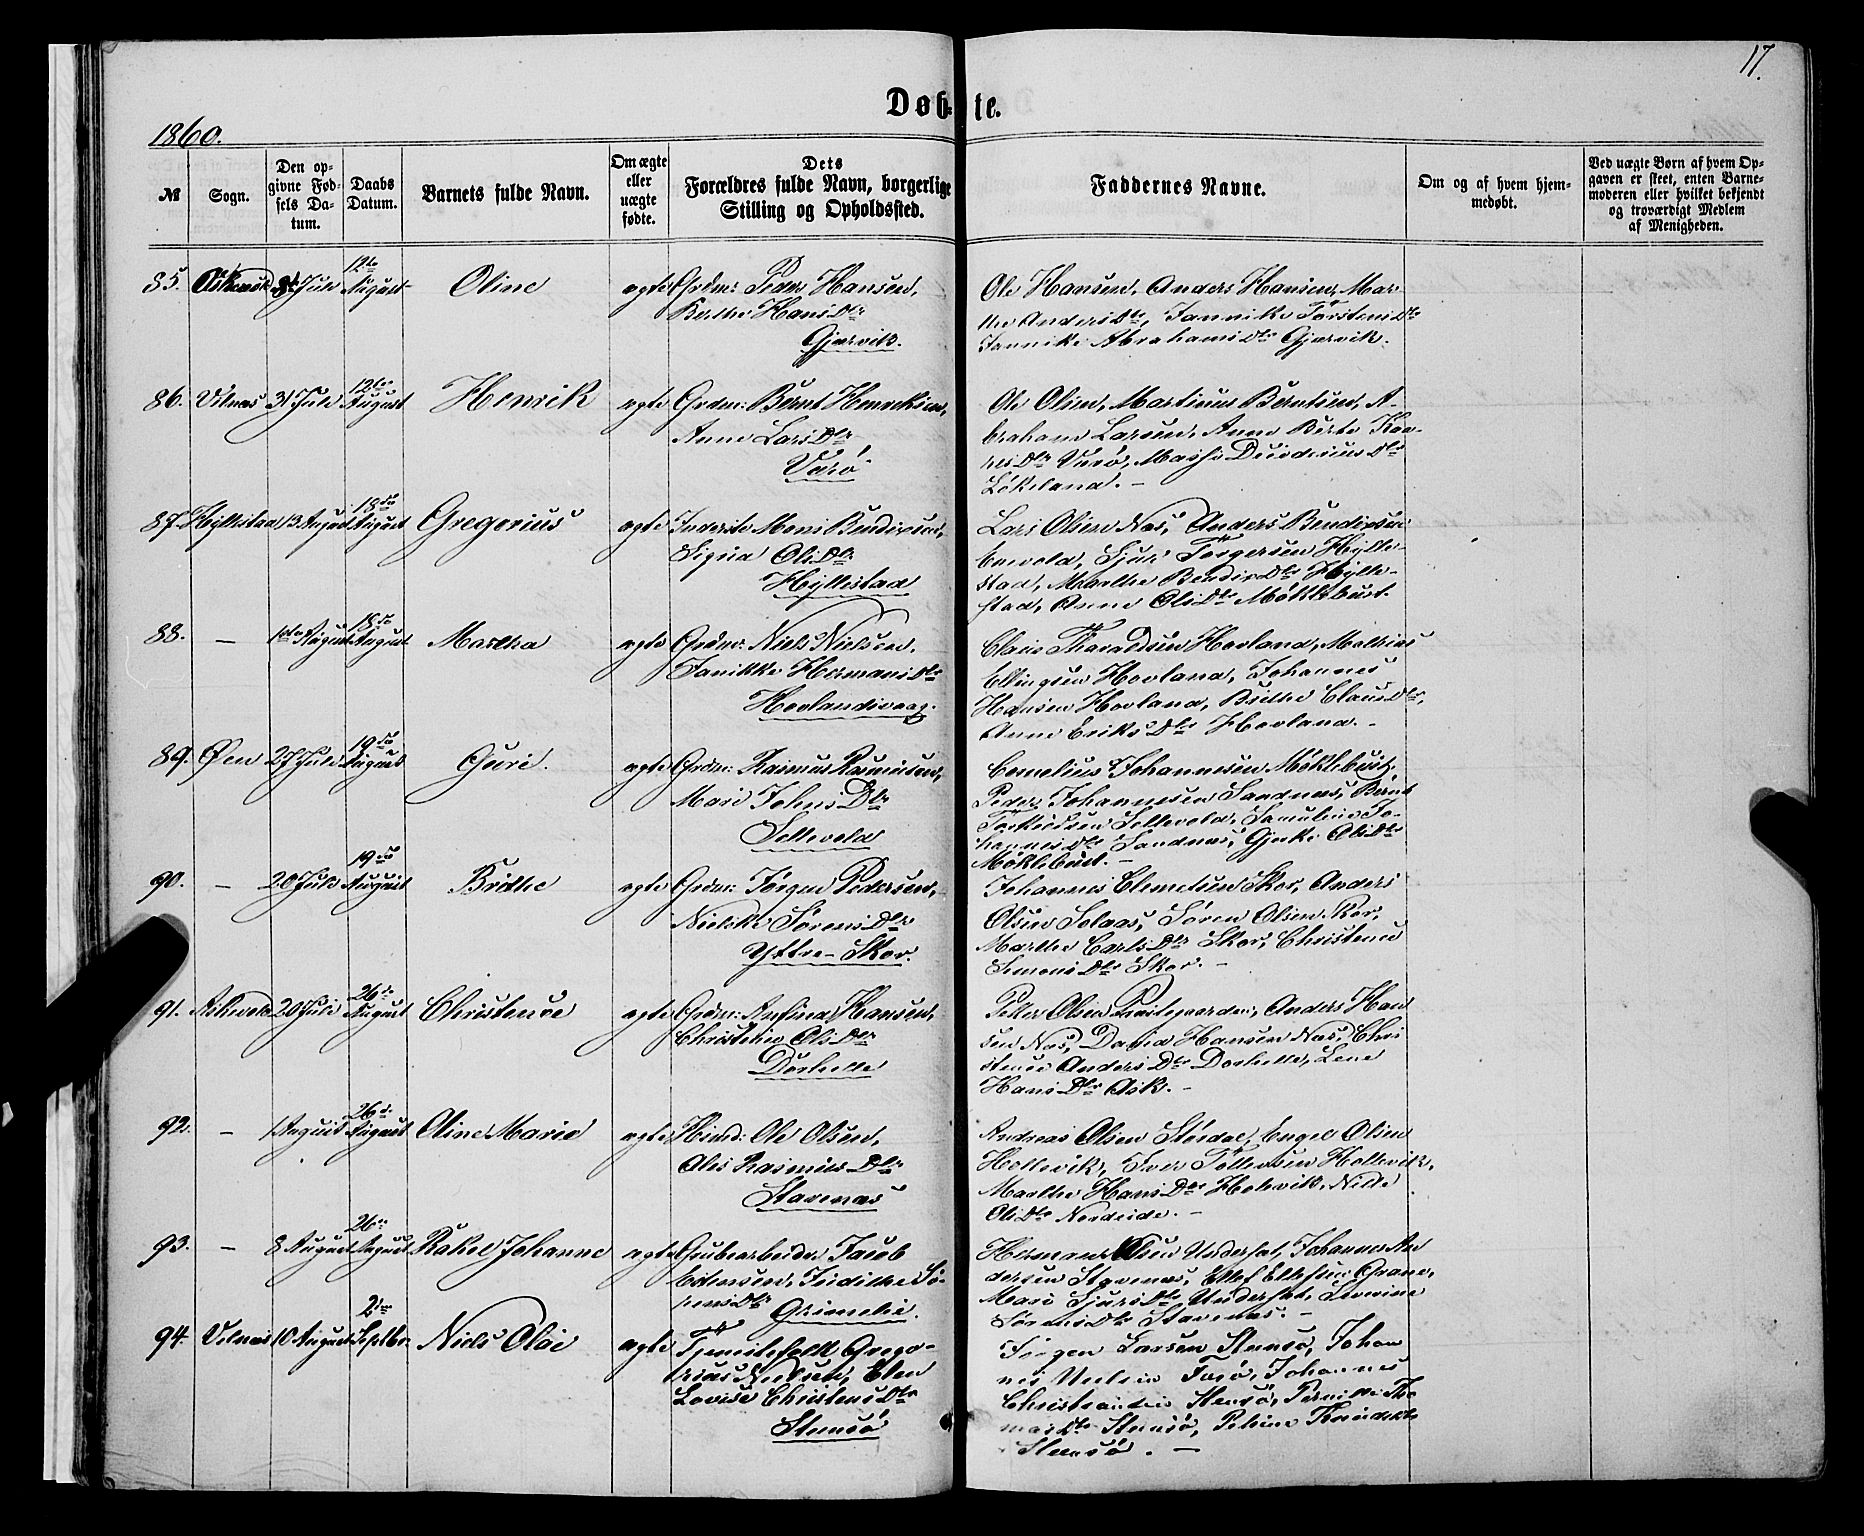 17.
Døbte.
1860.
№
Sogn.
Den op-
givne Fød-
sels Da-
tum.
Daabs
Datum.
Barnets fulde Navn.
Om ægte
eller
uægte
fødte.
Dets
Forældres fulde Navn, borgerlige
Stilling og Opholdssted.
Faddernes Navne.
Om og af hvem hjem-
medøbt.
Ved uægte Børn af hvem Op-
gaven er skeet, enten Barne-
moderen eller hvilket bekjendt
og troværdigt Medlem
af Menigheden.
85. Juli 12te August Oline ægte Grdm: Peder Hansen,
Berthe Hans Dtr
Gjærvik.
Ole Hansen, Anders Hansen, Mar-
the Anders Dtr, Jannike Torstens Dtr
Jannike Abrahams Dtr Gjærvik.
86. Vilnæs 31 Juli 12te August Henrik ægte Grdm: Bernt Henriksen,
Anne Lars Dtr
Værø
Ole Olsen, Martinus Berntsen, A-
braham Larsen, Anne Berte
Dtr Værø, Dtr
Løkeland. -
87. Hyllestad 13 August 18de August Gregorius ægte Inderste Mons Bendixsen,
Signa Ols Dtr
Hyllestad
Lars Olsen Næs, Anders Bendixsen
Sjur Torgersen Hylle-
stad, Marthe Bendix Dtr Hylle-
stad, Anne Ols Dtr Møklebust.
88. - 1ste August 18de August Martha ægte Grdm: Niels Nielsen,
Janikke Hermans Dtr
Hovlandsvaag.
Claus Haraldsen Hovland, Mathias
Ellingsen Hovland, Johannes
Hansen Hovland, Brithe Claus Dtr,
Anne Eriks Dtr Hovland. -
89. Øen 27 Juli 19de August Guri. ægte Grdm: Rasmus Rasmusen,
Mari Johns Dtr
Sellevold
Cornelius Johannesen Møklebust,
Peder Johannesen Sandnæs, Bernt
Torkildsen Sellevold, Samuline Jo-
hannes Dtr Sandnæs, Gjerke Ols Dtr
Møklebust. -
90. - 20 Juli 19de August Brithe ægte Grdm: Jørgen Pedersen,
Nielske Sørens Dtr
Yttre-Skor.
Johannes Clemetsen Skor, Anders
Olsen Solaas, Søren Olsen Skor,
Marthe Carls Dtr Skor, Christence
Simons Dtr Skor. -
91. Askevold 20 Juli 26de August Christence ægte Grdm: Anfind Hansen,
Christine Ols Dtr
Dorhelle
Peter Olsen Anders Han
sen Næs, David Hansen Næs, Chri
stence Anders Dtr Dorhelle, Lene
Hans Dtr Ask. -
92. - 1 August 26de August Oline Marie ægte Ole Olsen,
Rasmus Dtr
Stavenæs
Andreas Olsen Størdal, Engel Olsen
Hollevik, Iver Tollevsen Hollevik,
Marthe Hans Dtr Holevik, Nille
Ols Dtr Nordeide. -
93. - 8 August 26de August Rakel Johanne ægte Grubearbeider Jacob
Edensen, Judithe Sø-
rens Dtr
Grimelie.
Herman Olsen Undersæt, Johannes An
dersen Stavenæs, Ellef Ellefsen Grane,
Mari Sjurs Dtr Undersæt, Severine
Sørens Dtr Stavenæs. -
94. Vilnæs 10 August 2den Septbr. Niels Olai ægte Tjenestefolk Grego-
rius Nielsen, Elen
Lovise Christens Dtr
Stensø
Jørgen Larsen Stensø, Johan
nes Nielsen Johannes
Christiansen Stensø, Pernille Tho
mas Dtr Stensø, Petrine
Stensø. -